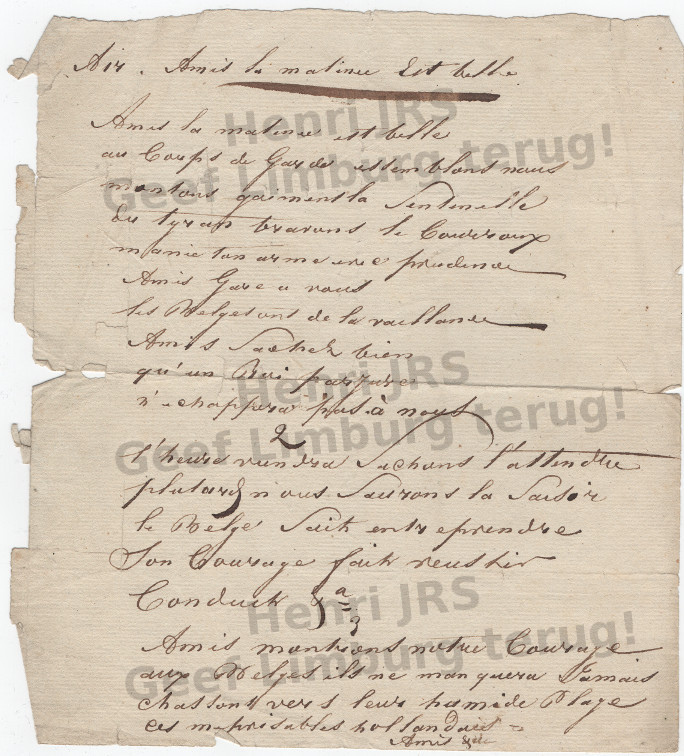 Air. Amis la matinee Est belle
Amis la matinee est belle
au Corps de Garde essemblons nous
montons gaiment la Sentinelle
du tyran bravons le Courroux
manie ton arme avec prudence
Amis Gare a vous
les Belges ont de la vaillance
Amis Sachez bien
qu'un Roi parjure
n'echappera pas à nous
2
l'heure viendra Sachons l'attendre
plutard nous Saurons la Saisir
le Belge Sait entreprendre
Son Courage fait reussir
Conduit &a
3
Amis montrons notre Courage
aux Belges ils ne manquera Jamais
chassons vers leur humide Plage
ces meprisables hollandais
Amis &c
Henri JRS
Geef Limburg terug!
Henri JRS
Geef Limburg terug!
Henri JRS
Geef Limburg terug!